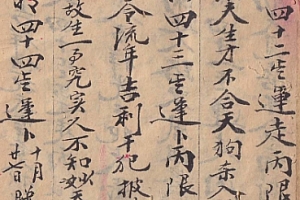 四十二岁運走丙限
夫生才不合天狗赤入
四十三岁運卜丙限
令流年吉利干犯披
故生一子究实人不知妙
四十四岁運卜十月